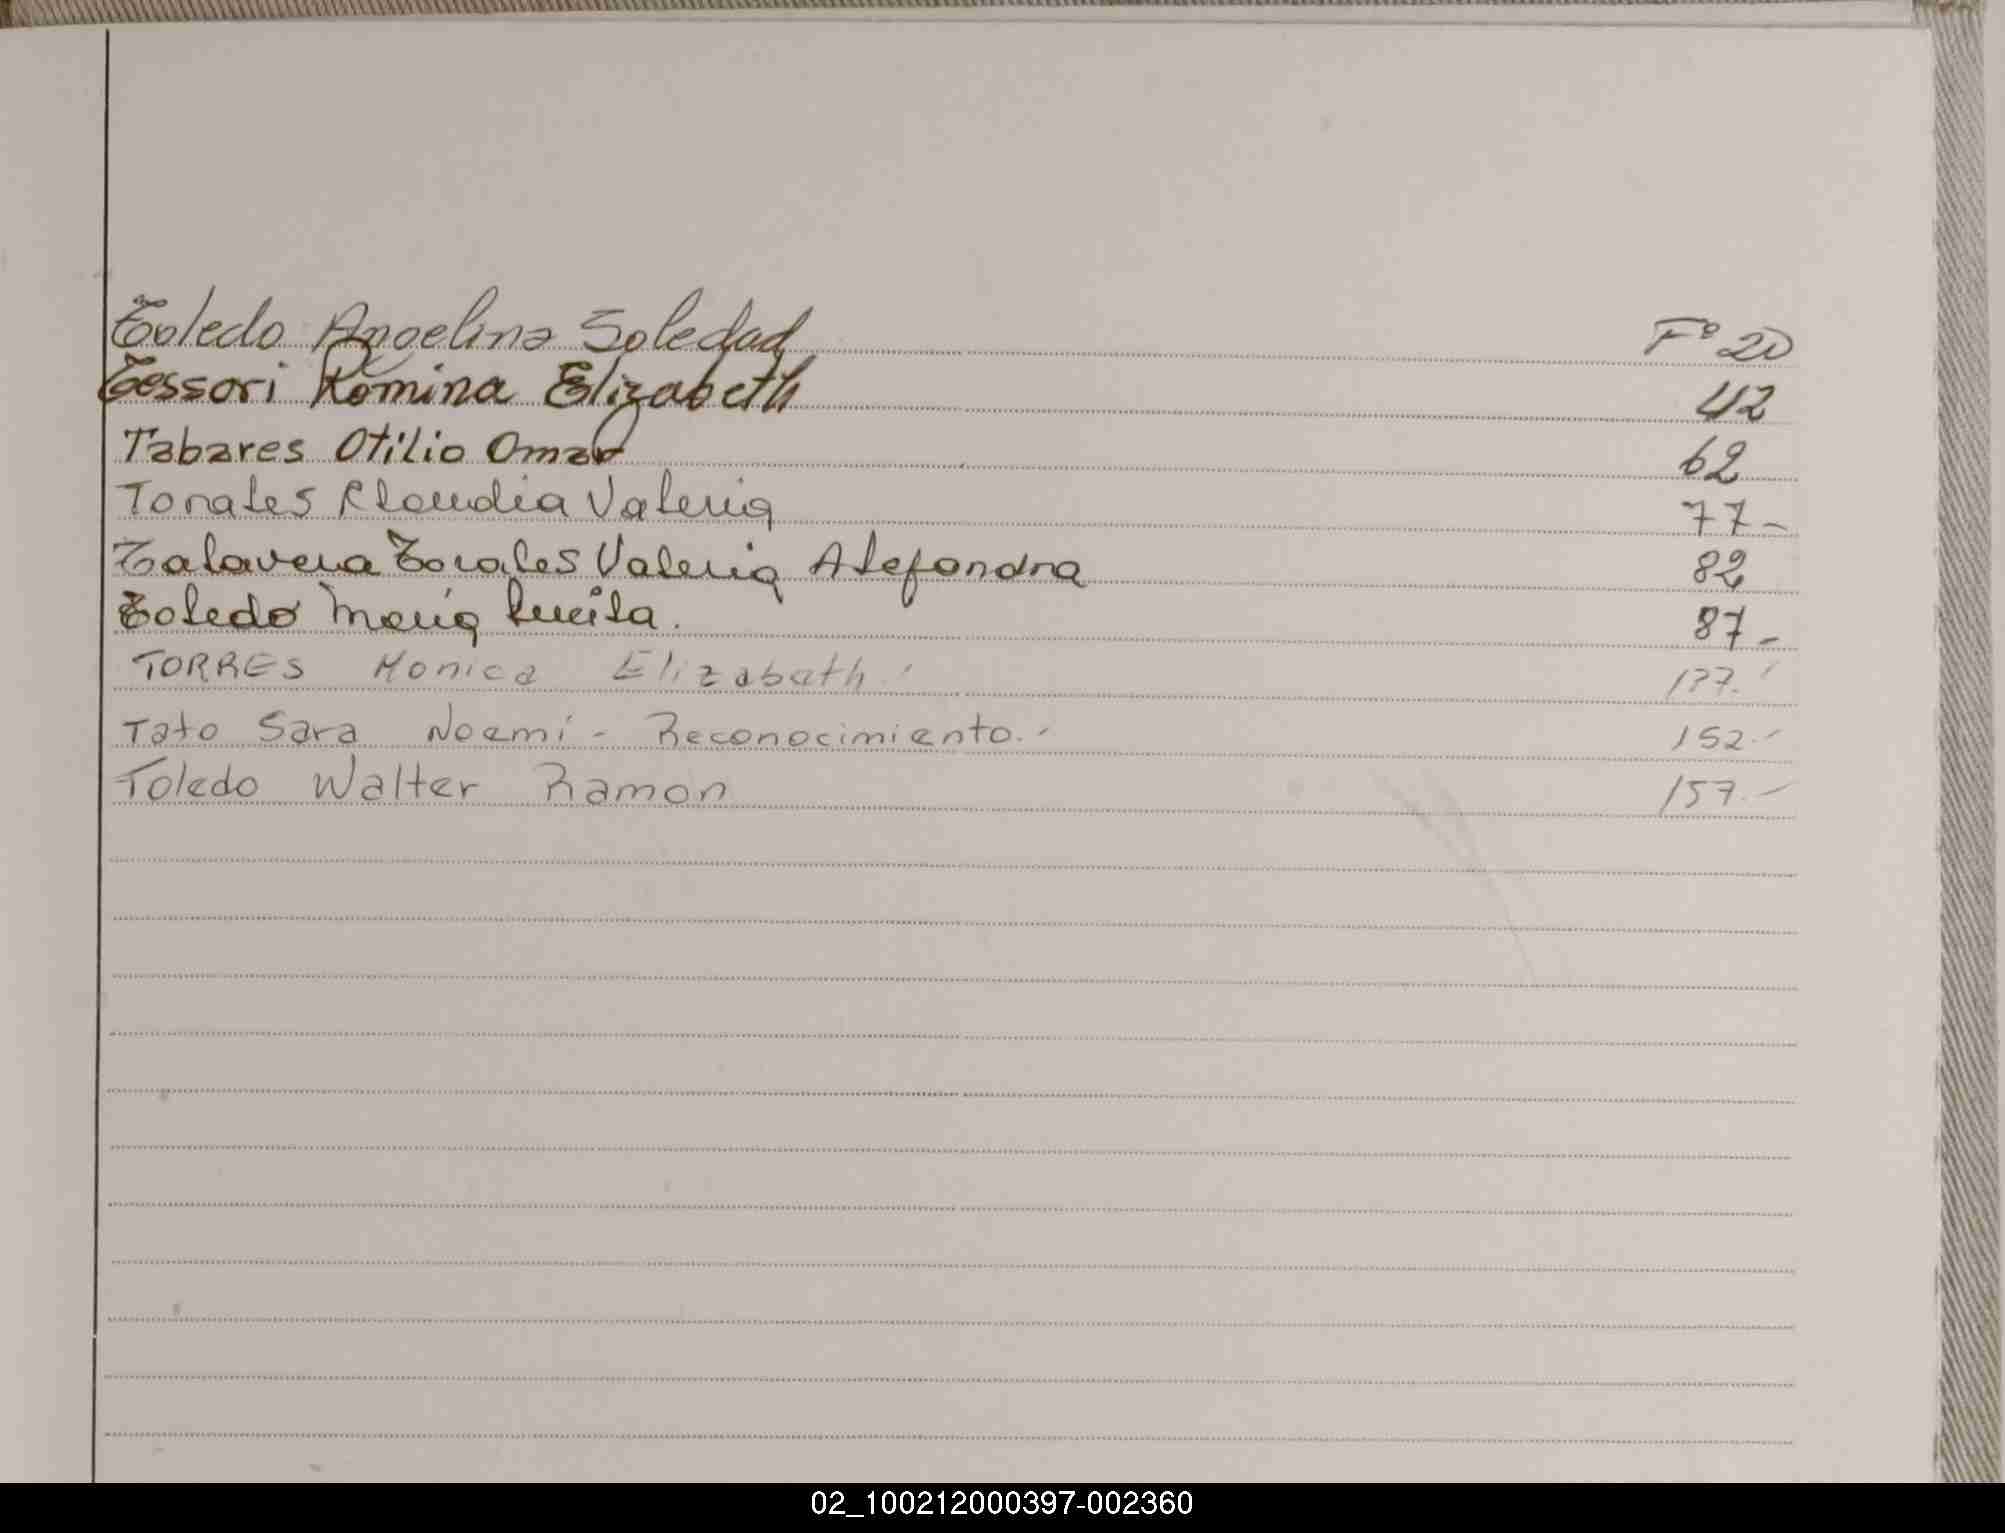 Toledo Angelina Soledad Fº 20
Tessori Romina Elizabeth 42
Tabares Otilio Omar 62
Torales Claudia Valeria 77-
Talavera Torales Valeria Alejandra 82
Toledo María Lucila. 87-
TORRES Monica Elizabeth.
Tato Sara Noemí - Reconocimiento.- 152.-
Toledo Walter Ramon 157.-
02_100212000397-002360